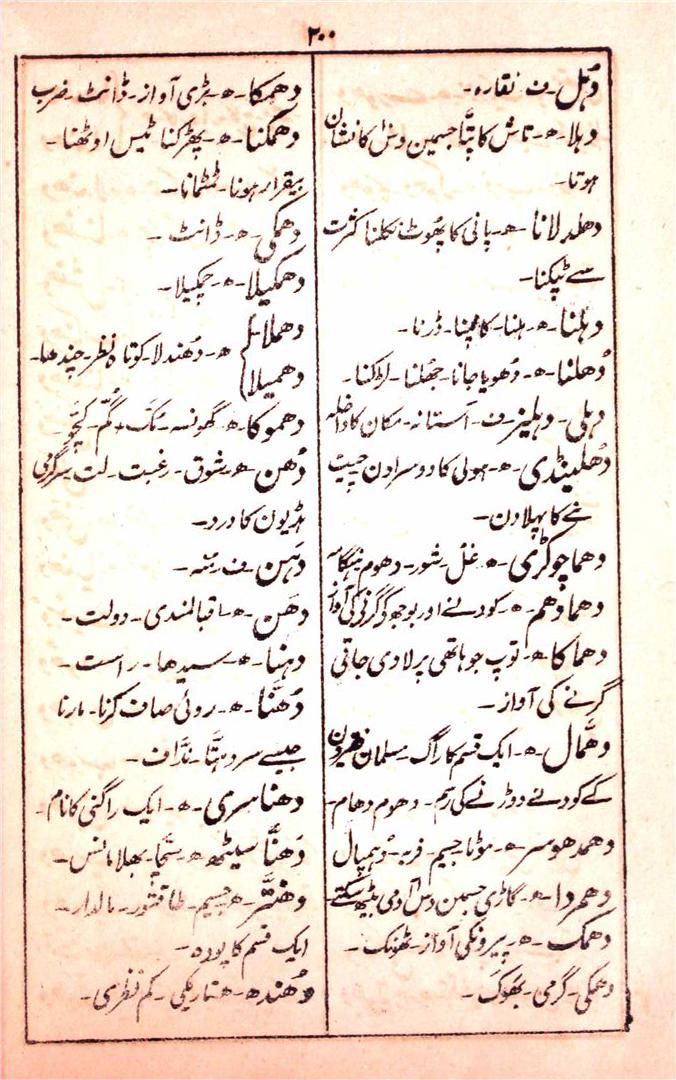 ۲۰۰
دُہل۔ ف نقارہ۔
دہلا۔ ھ۔ تاش کا پتّا جسمین دس کا نشان
ہوتا۔
دھلدلانا۔ ھ۔ پانی کا پھوٹ نکلنا کثرت
سے ٹپکنا۔
دہلنا۔ ھ۔ ہلنا۔ کامپنا۔ ڈرنا۔
دُھلنا۔ ھ۔ دُھویا جانا۔ جھلنا۔ لڑکنا۔
دہلی۔ دہلیز۔ ف۔ آستانہ۔ مکان کا داخلہ
دُھلینڈی۔ ھ۔ ہولی کا دوسرا دن چیت
نے کا پہلا دن۔
دھماچوکڑی۔ ھ۔ غل۔ شور۔ دھوم ہنگامہ
دھمادھم۔ ھ۔ کودنے اور بوجھ کے گرنے کی آواز
دھماکا۔ ھ۔ توپ جو ہاتھی پر لادی جاتی
گرنے کی آواز۔
دھمّال۔ ھ۔ ایک قسم کا راگ۔ مسلمان فقیرون
کے کودنے دوڑنے کی رسم۔ دھوم دھام۔
دھمدھوسر۔ ھ۔ موٹا جسیم۔ فربہ۔ دُہمپال
دھمردا۔ ھ۔ گاڑی جسمین دس آدمی بیٹھ سکتے۔
دھمک۔ ھ۔ پیرونکی آواز۔ ٹھونک۔
دھمکی۔ گرمی۔ بھوک۔
دھمکا۔ ھ۔ بڑی آواز۔ ڈانٹ۔ ضرب
دھمکنا۔ ھ۔ پھڑکنا ٹیس اوٹھنا۔
بیقرار ہونا۔ ٹمٹمانا۔
دھمکی۔ ھ۔ ڈانٹ۔
دھمکیلا۔ ھ۔ چمکیلا۔
دھملا۔
دھمیلا۔ ھ۔ دُھندلا۔ کوتاہ نظر۔ چندھا۔
دھموکا۔ ھ۔ گھونسہ۔ مُکّ۔ گُمّ۔ کچّو۔
دُھن۔ ھ۔ شوق۔ رغبت۔ لت سرگرمی
ہڈیون کا درد۔
دہَن۔ ف۔ مُنہ۔
دھَن۔ ھ۔ اقبالمندی۔ دولت۔
دہنا۔ ھ۔ سیدھا۔ راست۔
دُھنّا۔ ھ۔ روئی صاف کرنا۔ مارنا
جیسے سر دہنتا۔ ندّاف۔
دھناسری۔ ھ۔ ایک راگنی کا نام۔
دَھنّا سیٹھ۔ ھ۔ سَچّا۔ بھلا مانس۔
دھنتّر۔ ھ۔ جسیم۔ طاقتور۔ مالدار۔
ایک قسم کا پودہ۔
دُھندھ۔ ھ۔ تاریکی۔ کم نظری۔